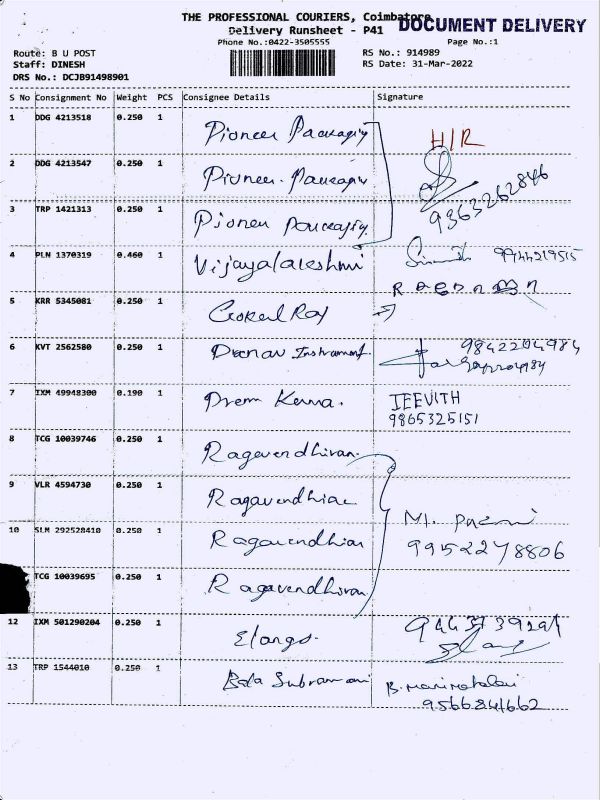 THE PROFESSIONAL COURIERS, Coimbatore
DOCUMENT DELIVERY
Delivery Runsheet - P41
Phone No.:0422-3505555
Page No.:1
Route: B U POST
RS No.: 914989
Staff: DINESH
RS Date: 31-Mar-2022
DRS No.: DCJB91498901
S No Consignment No Weight PCS Consignee Details Signature
1 DDG 4213518 0.250 1 Pioneer Packaging H/R
2 DDG 4213547 0.250 1 Pioneer 9363262846
3 TRP 1421313 0.250 1 Pioneer
4 PLN 1370319 0.460 1 Vijayalakshmi 9944219515
5 KRR 5345081 0.250 1 Gokul Raj
6 KVT 2562580 0.250 1 Instrument. 9842204984
7 IXM 49948300 0.190 1 Prem JEEVITH
9865325151
8 TCG 10039746 0.250 1 Ragavendhiran.
9 VLR 4594730 0.250 1 Ragavendhiran
10 SLM 292528410 0.250 1 Ragavendhiran 9952278806
TCG 10039695 0.250 1 Ragavendhiran
12 IXM 501290204 0.250 1 Elango.
13 TRP 1544010 0.250 1 Bala Subramani
9566841662